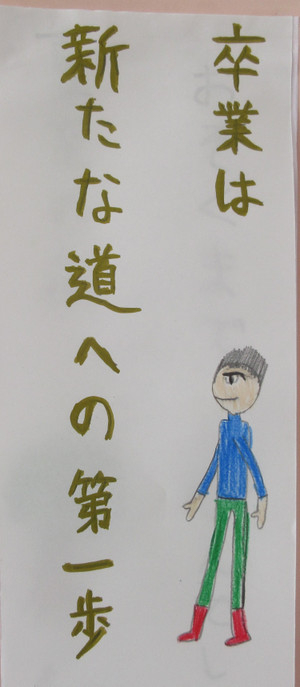 卒業は
新たな道への第一歩